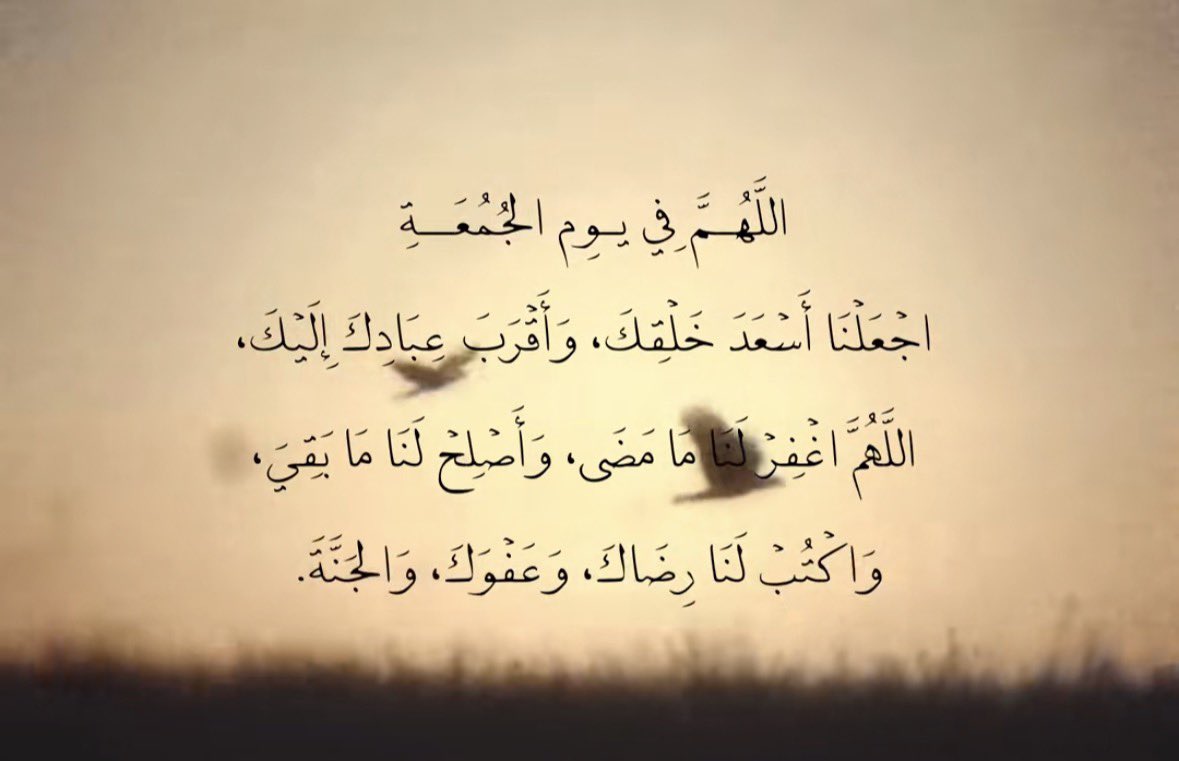 اللَّهُـمَّ فِي يـومِ الجُمُعَـةِ
اجْعَلْنَا أَسْعَدَ خَلْقِكَ، وَأَقْرَبَ عِبَادِكَ إِلَيْكَ،
اللَّهُمَّ اغْفِرْ لَنَا مَا مَضَى، وَأَصْلِحْ لَنَا مَا بَقِيَ،
وَاكْتُبْ لَنَا رِضَاكَ، وَعَفْوَكَ، وَالجَنَّةَ.